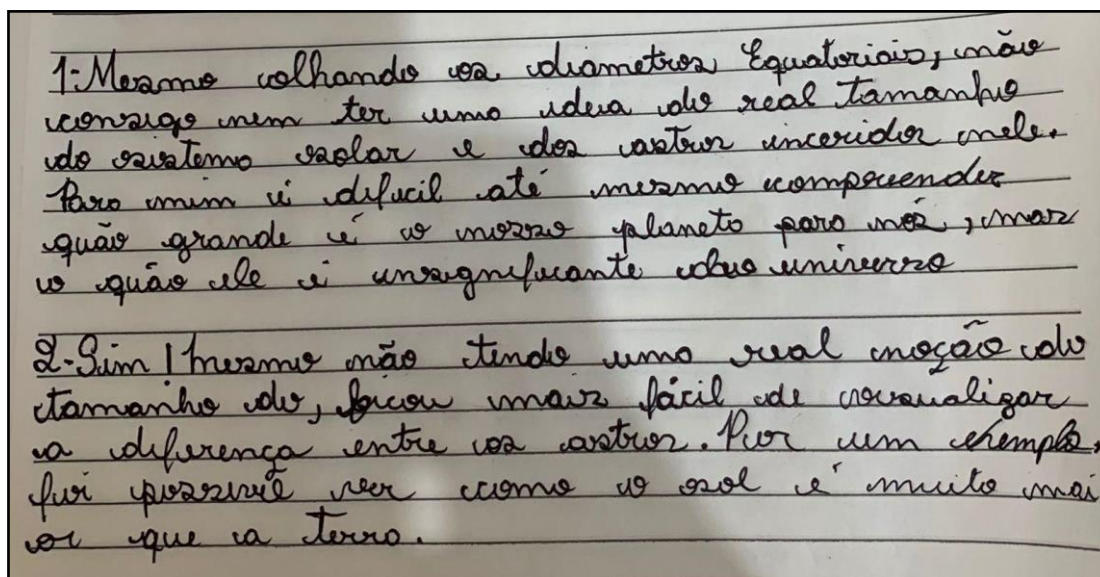 1-Mesmo olhando os diametros Equatoriais, não
consigo nem ter uma ideia do real tamanho
do sistema solar e dos astros inceridos nele.
Para mim é dificil até mesmo compreender
quão grande é o nosso planeta para nós, mas
o quão ele é insignificante
universo
2-Sim! mesmo não tendo uma real noção do
tamanho do, ficou mais fácil de visualizar
a diferença entre os astros. Por um exemplo,
foi possivel ver como o sol é muito mai
or que a terra.